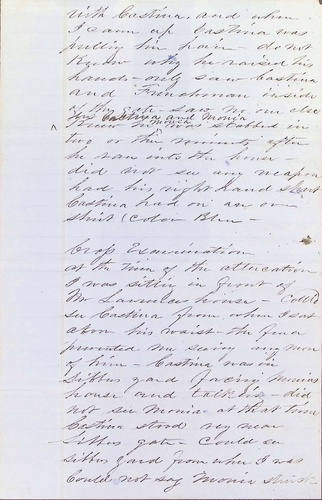 with Castina. and when
I came up Castina was
pulling his hair - do not
know why he raised his
hands - only saw Castina
and Frenchman inside
of the gate - saw no one else
but Castina and Monia
I knew Monia was stabbed in
two or three minutes after
he ran into the house -
did not see any weapon
had his right hand
Castina had on an over
shirt (Color Blue -
Cross Examination
at the time of the altercation
I was sitting in front of
Mr house - Could
see Castina from where I sat
above his waist - the fence
prevented me seeing any more
of him - Castina was in
yard facing Monias
house and talking - did
not see Monia at that time
Castina stood very near
gate - Could see
yard from where I was
Could not say Monia